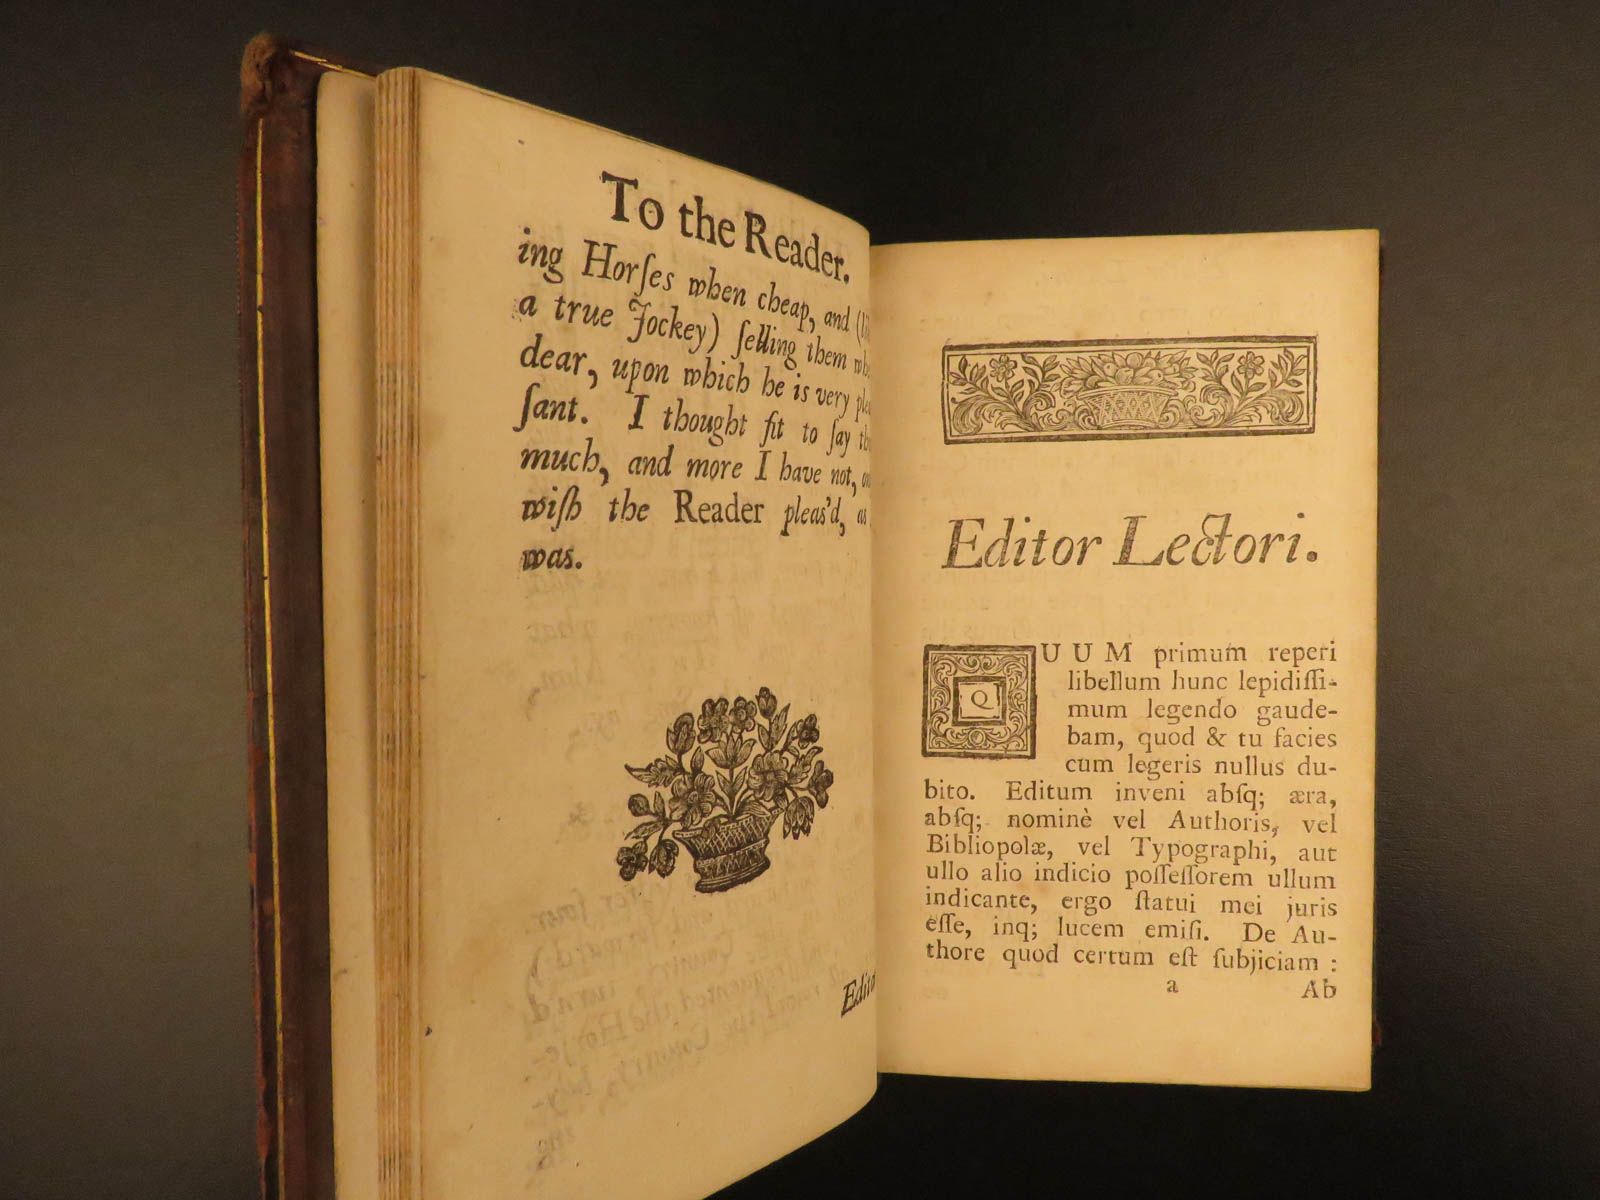 To the Reader.
ing Horſes when cheap, and
a true Jockey) ſelling them
dear, upon which he is very
ſant. I thought fit to ſay
much, and more I have not,
wiſh the Reader pleas'd, as
was.
Editor Lectori.
QUUM primum reperi
libellum hunc lepidiſſi-
mum legendo gaude-
bam, quod & tu facies
cum legeris nullus du-
bito. Editum inveni abſq; æra,
abſq; nominè vel Authoris, vel
Bibliopolæ, vel Typographi, aut
ullo alio indicio poſſeſſorem ullum
indicante, ergo ſtatui mei juris
eſſe, inq; lucem emiſi. De Au-
thore quod certum eſt ſubjiciam :
a Ab